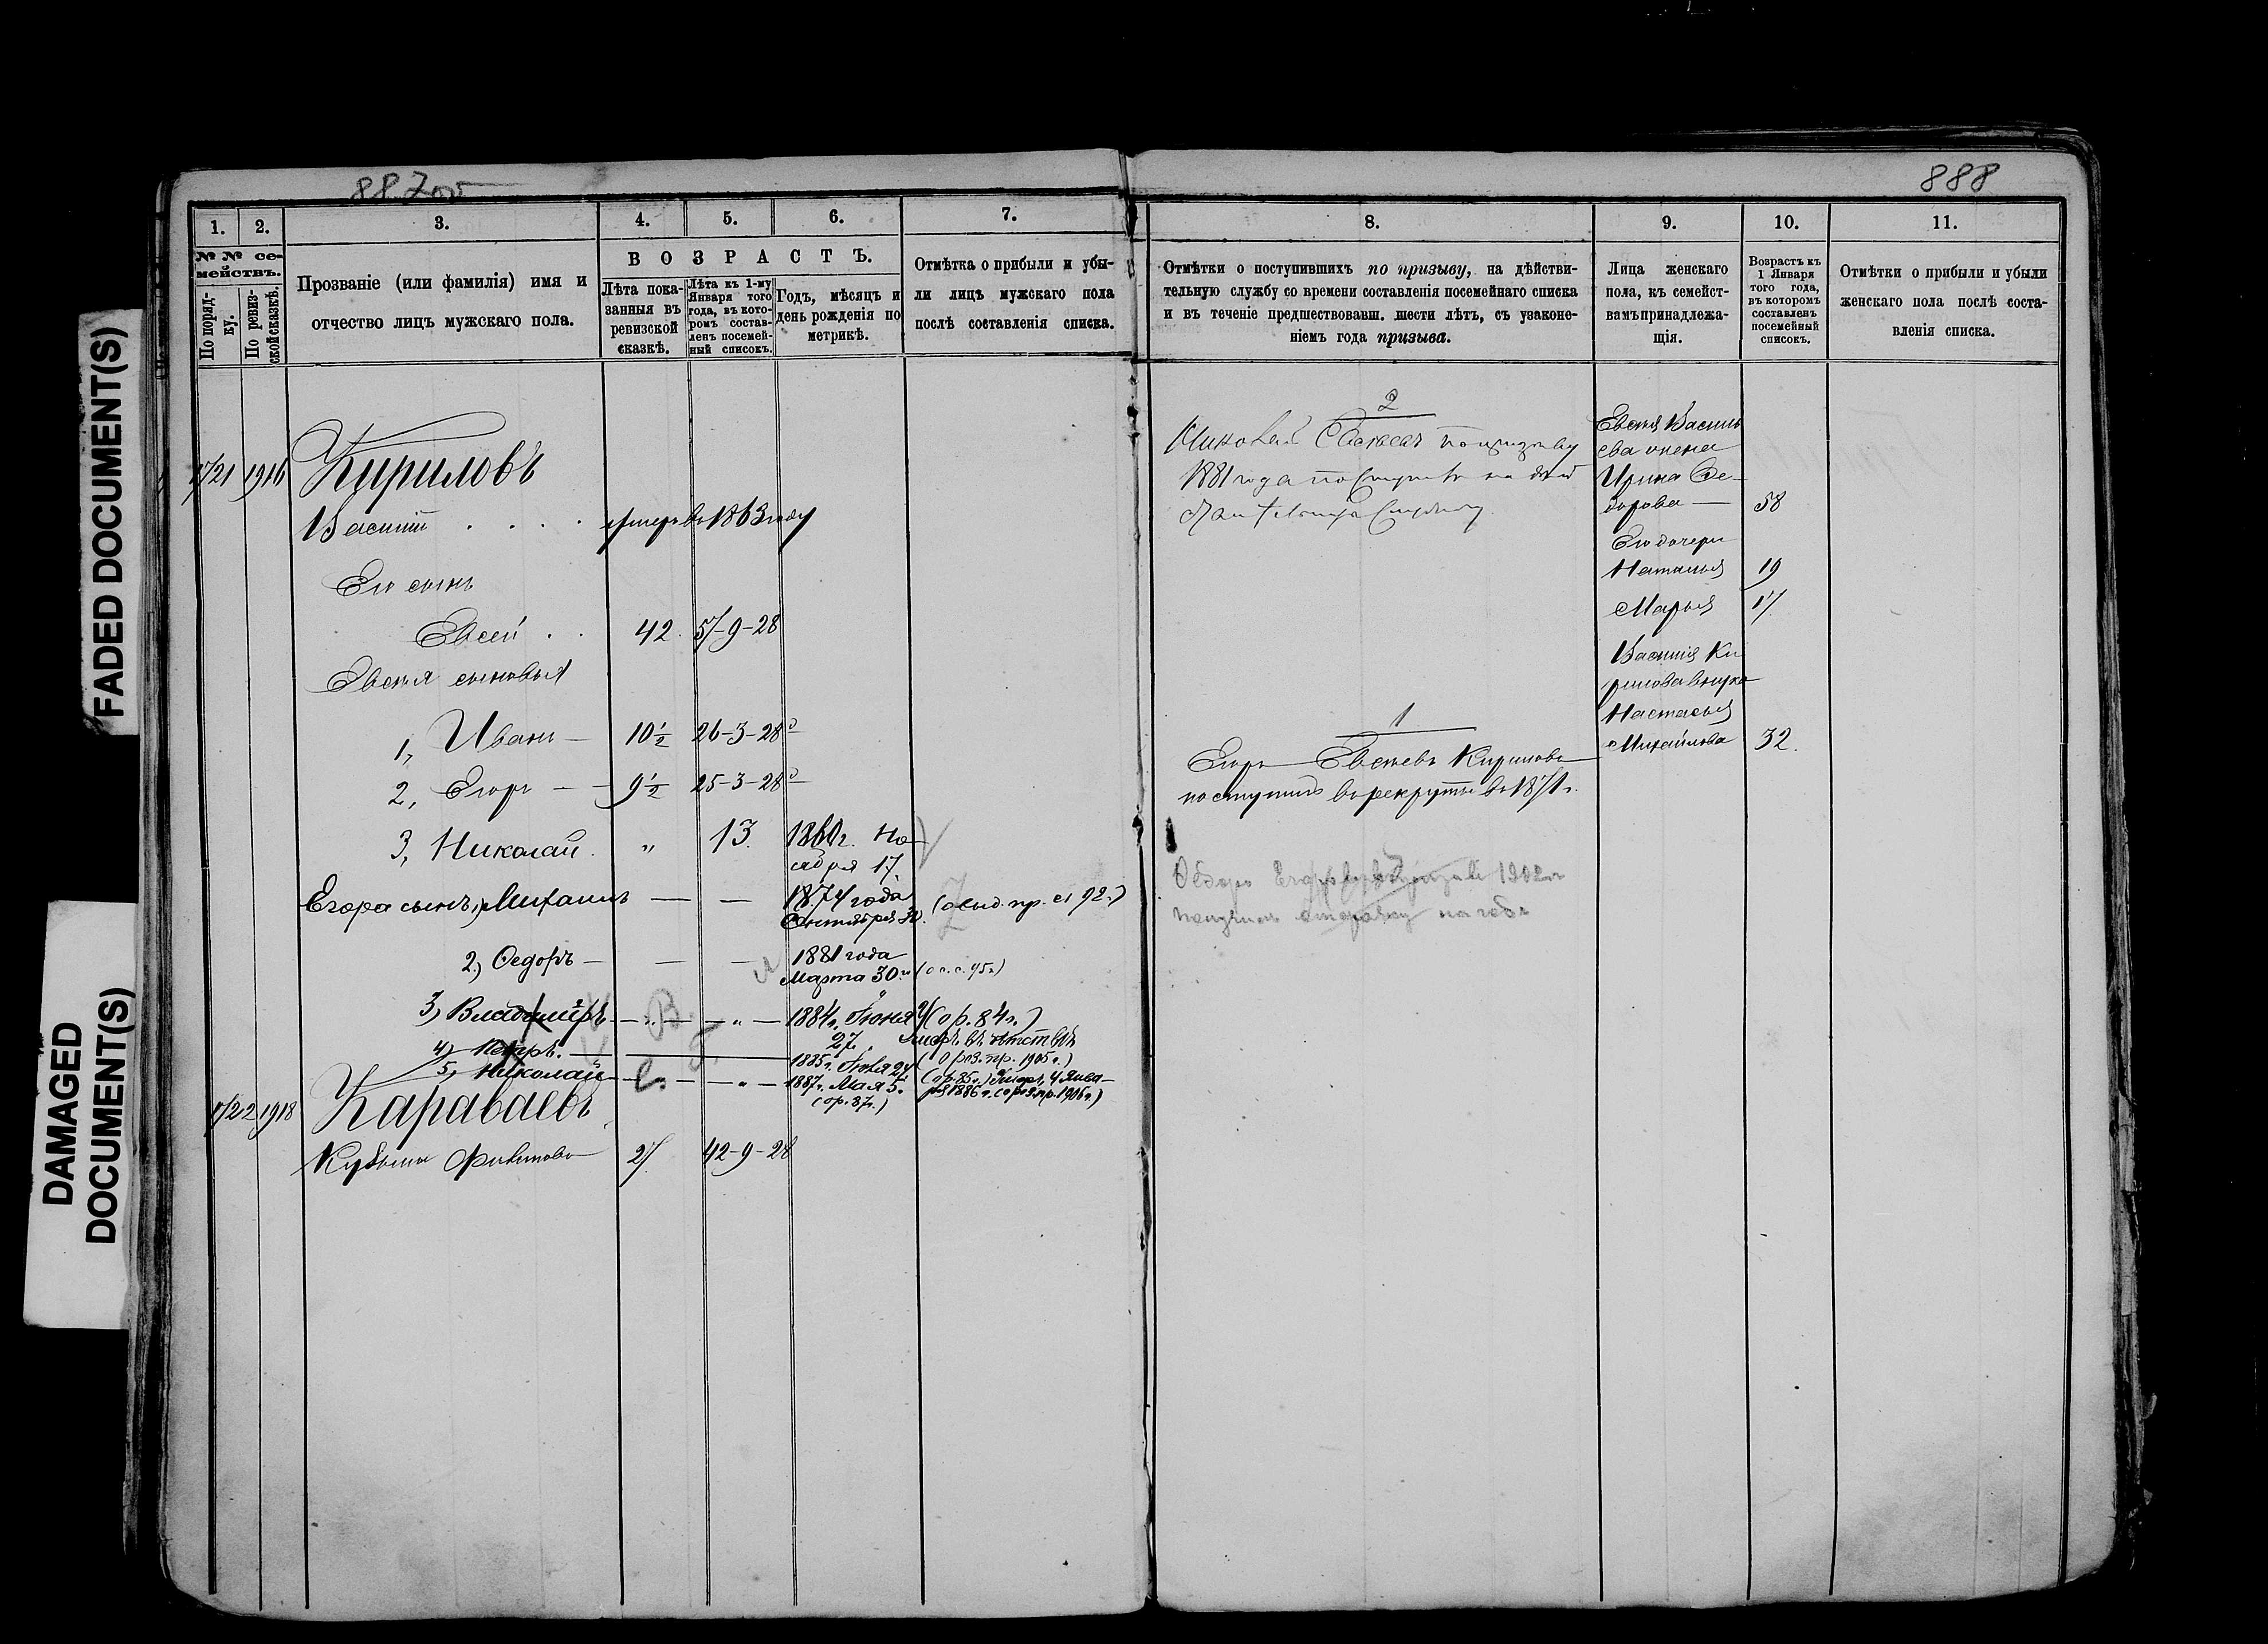 FADED DOCUMENT(S)
DAMAGED
DOCUMENT(S)
888
1.
2.
3.
4.
5.
6.
7.
№ № се-
мействъ.
По поряд-
ку.
По ревиз-
ской сказкѣ.
Прозваніе (или фамилія) имя и
отчество лицъ мужскаго пола.
ВОЗРАСТЪ.
Лѣта пока-
занныя въ
ревизской
сказкѣ.
Лѣта къ 1-му
Января того
года, въ кото-
ромъ состав-
ленъ посемей-
ный списокъ.
Годъ, мѣсяцъ и
день рожденія по
метрикѣ.
Отмѣтка о прибыли и убы-
ли лицъ мужскаго пола
послѣ составленія списка.
8.
9.
10.
11.
Отмѣтки о поступившихъ по призыву, на дѣйстви-
тельную службу со времени составленія посемейнаго списка
и въ теченіе предшествовавш. шести лѣтъ, съ узаконе-
ніемъ года призыва.
Лица женскаго
пола, къ семейст-
вамъ принадлежа-
щія.
Возрастъ къ
1 Января
того года,
въ которомъ
составленъ
посемейный
списокъ.
Отмѣтки о прибыли и убыли
женскаго пола послѣ соста-
вленія списка.
1721 1916 Кириловъ
Василій . . . . умеръ въ 1863 году
Его сынъ
Евсей . . 42. 57-9-28
Евсея сыновья
1, Иванъ — 10½ 26-3-28
2, Егоръ — 9½ 25-3-28
3, Николай. „ 13. 1860 г. Но-
ября 17.
Егора сынъ, Михаилъ — — 1874 года
Сентября (осыд. пр. 92.)
2.) Ѳедоръ — — — 1881 года
Марта 30.
3) Владиміръ — „ — „ — 1884 г. Іюня (о р. 84 г.)
27. Умеръ въ
4) Петръ. — 1885 г. (о рез. пр. 1905 г.)
5, Николай — „ — 1887 г. Мая 5. (ор. 85 г.) Умеръ 4 Янва-
(ор. 87 г.) ря 1886 г. (о рез. пр. 1906 г.)
1722 1918 Караваевъ
27. 42-9-28
2
Николай по призыву
1881 года поступилъ на
службу.
1
Егоръ Евсеевъ Кириловъ
поступилъ въ рекруты въ 1871 г.
Ѳедоръ 1902 г.
получилъ отсрочку на годъ
Евсея Василь
ева жена
Ирина Ѳе-
дорова — 58
Его дочери
Наталья 19
Марья 17
Василія Ки
рилова внука
Настасья
Михайлова 32.